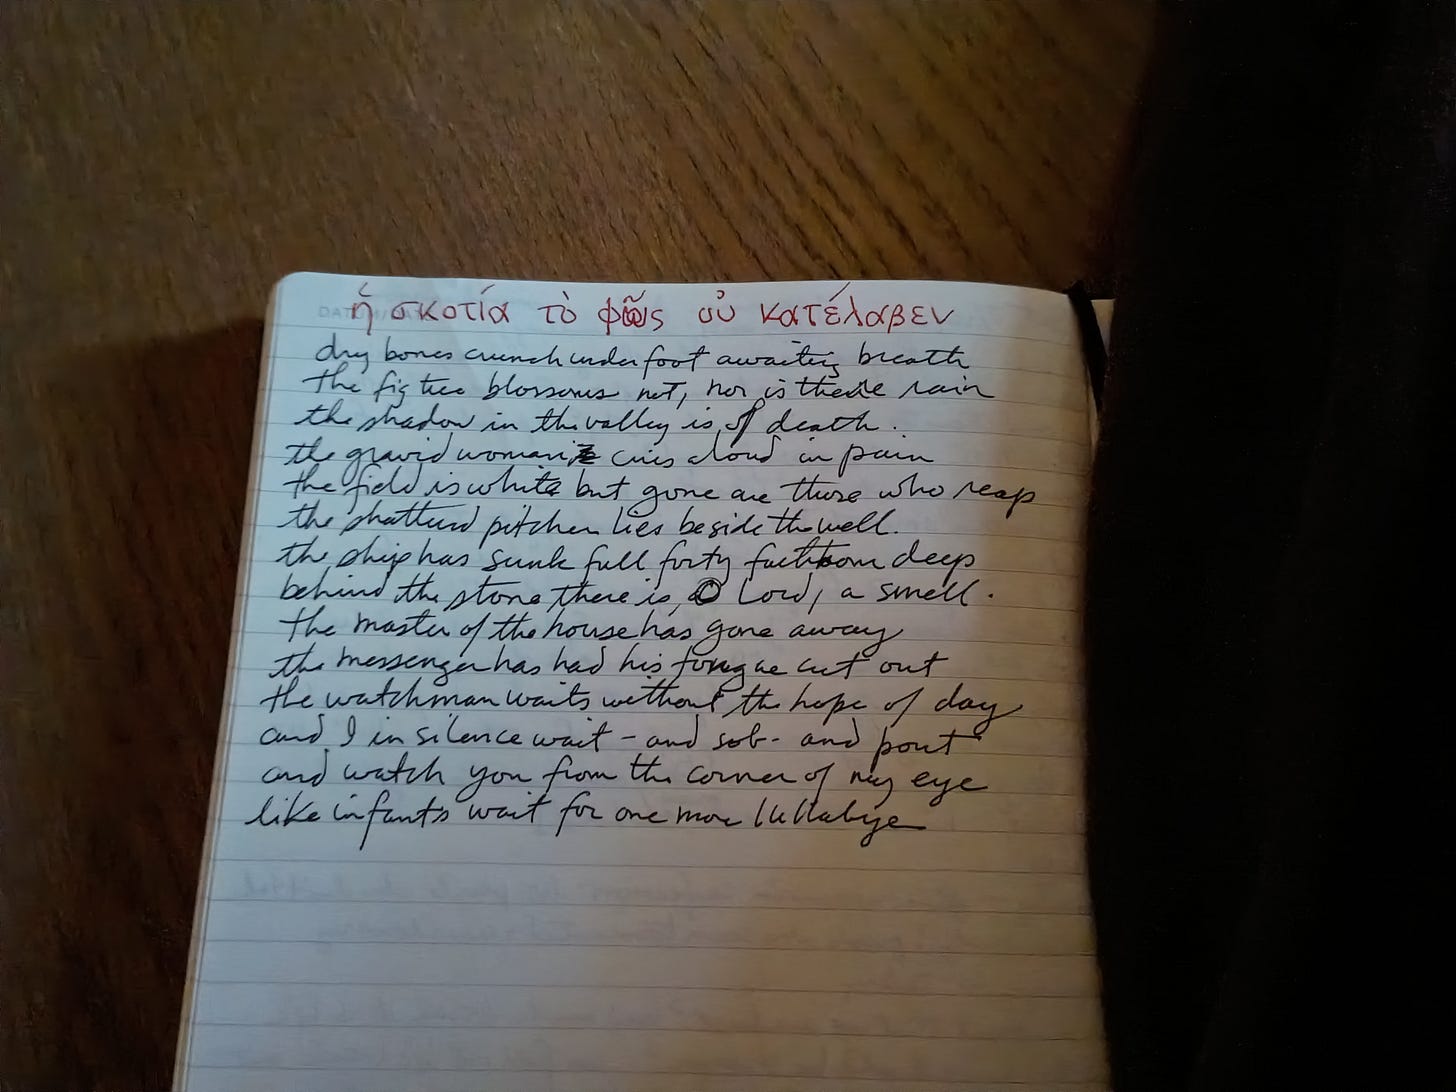 ἡ σκοτία τὸ φῶς οὐ κατέλαβεν
dry bones crunch underfoot awaiting breath
the fig tree blossoms not, nor is there rain
the shadow in the valley is of death.
the gravid woman cries aloud in pain
the field is white but gone are those who reap
the shattered pitcher lies beside the well.
the ship has sunk full forty fathom deep
behind the stone there is, O Lord, a smell.
the master of the house has gone away
the messenger has had his tongue cut out
the watchman waits without the hope of day
and I in silence wait - and sob - and pout
and watch you from the corner of my eye
like infants wait for one more lullabye